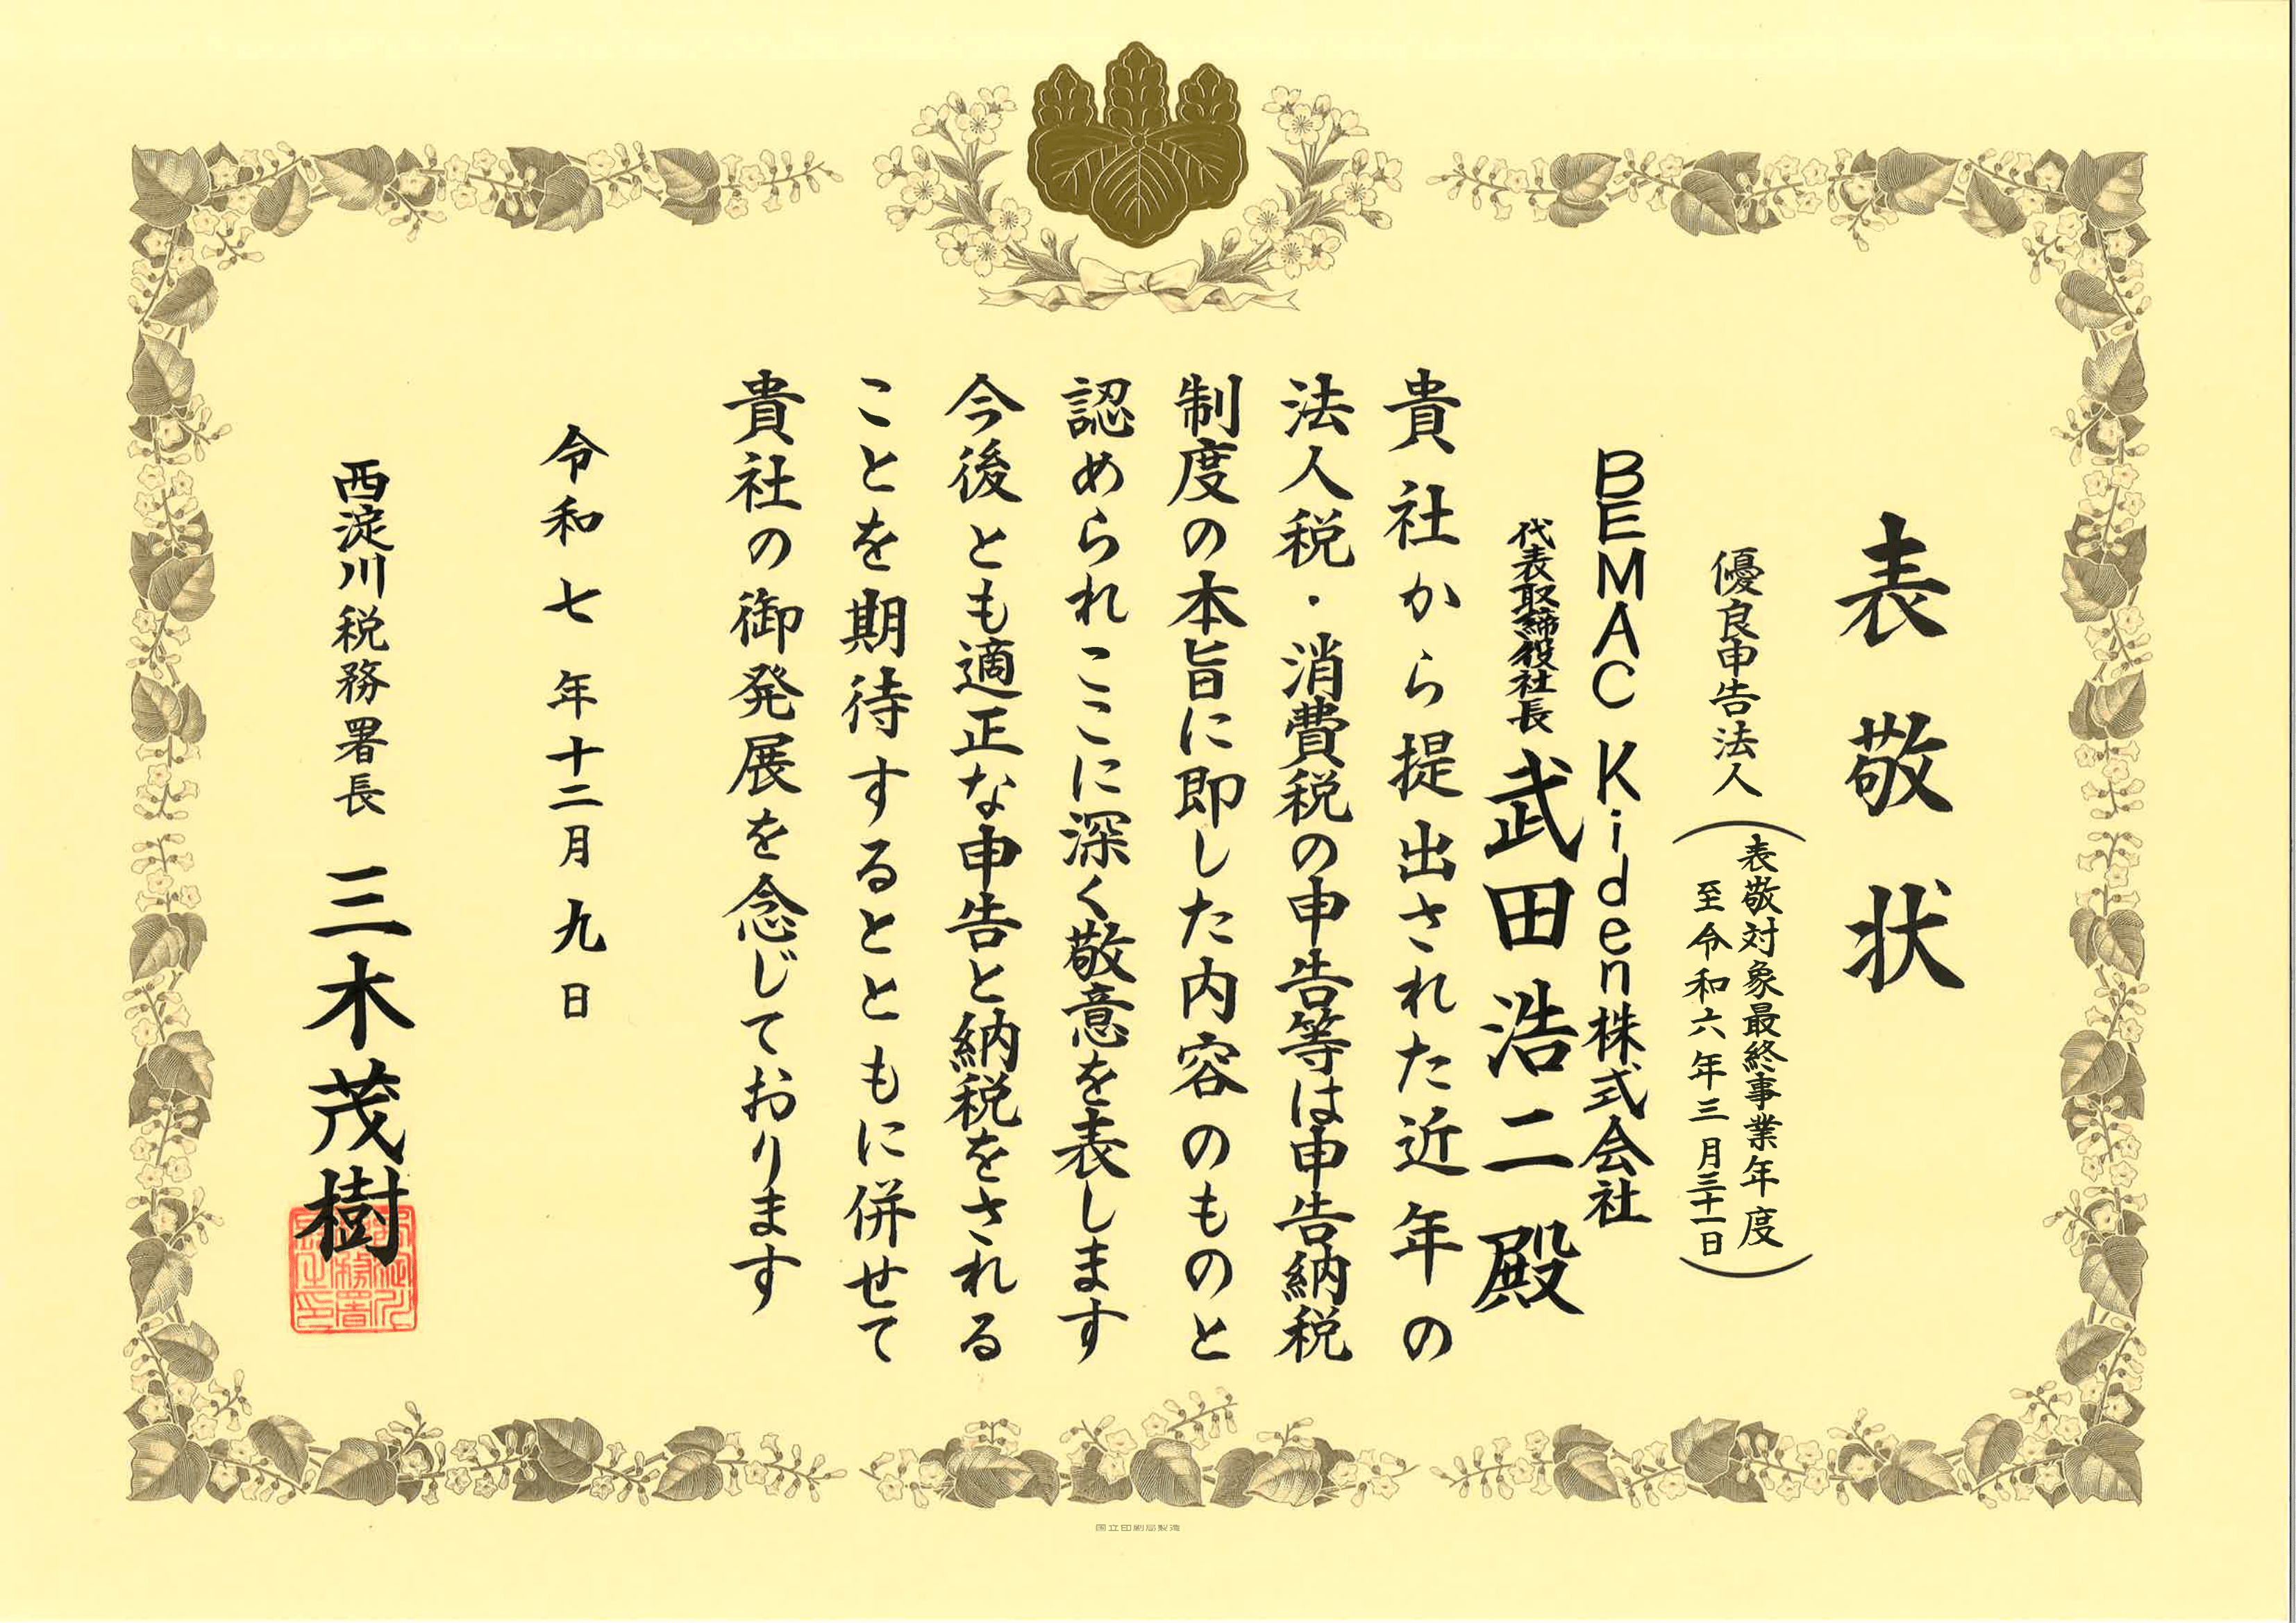 表敬状
優良申告法人
(表敬対象最終事業年度
至令和六年三月三十一日)
BEMAC Kiden株式会社
代表取締役社長 武田浩二殿
貴社から提出された近年の
法人税・消費税の申告等は申告納税
制度の本旨に即した内容のものと
認められここに深く敬意を表します
今後とも適正な申告と納税をされる
ことを期待するとともに併せて
貴社の御発展を念じております
令和七年十二月九日
西淀川税務署長 三木茂樹
国立印刷局製造